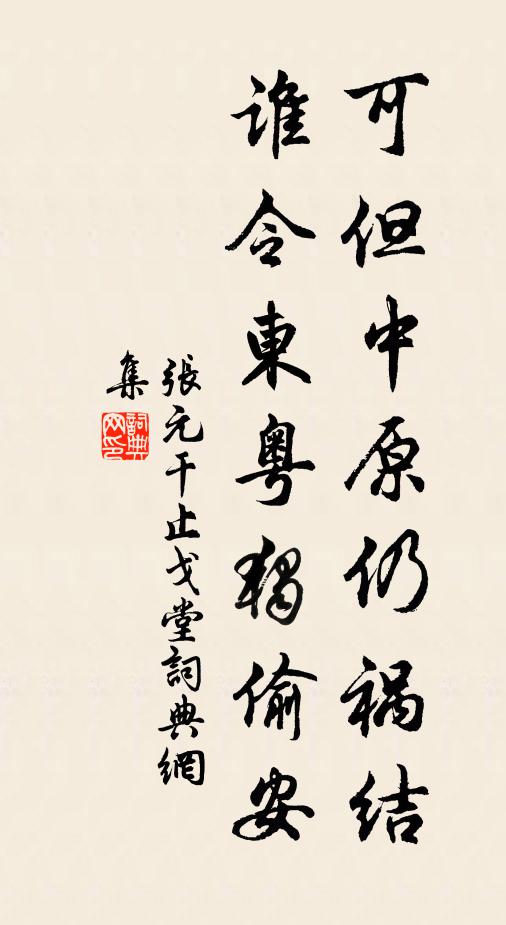 可但中原仍祸结
谁令東粤獨偷安
張元干止戈堂詞典網
集
詞典網印